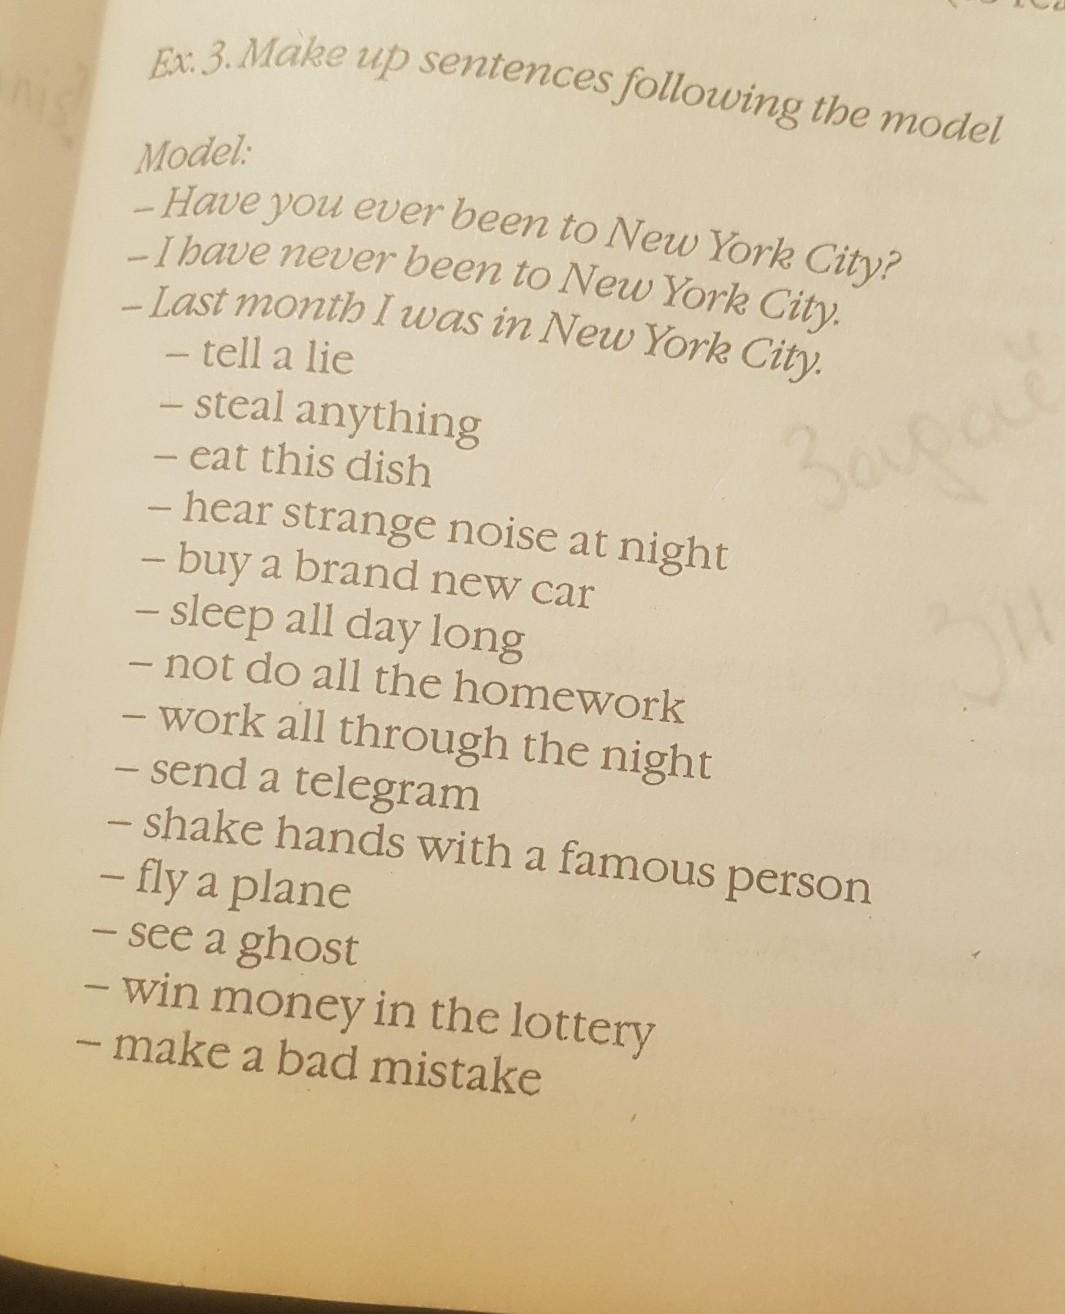 Ex. 3. Make up sentences following the model
Model:
– Have you ever been to New York City?
– I have never been to New York City.
– Last month I was in New York City.
– tell a lie
– steal anything
– eat this dish
– hear strange noise at night
– buy a brand new car
– sleep all day long
– not do all the homework
– work all through the night
– send a telegram
– shake hands with a famous person
– fly a plane
– see a ghost
– win money in the lottery
– make a bad mistake